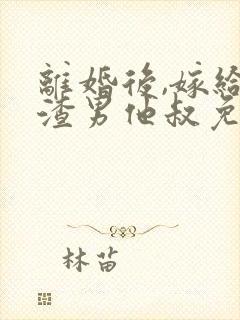 離婚後,嫁給
渣男他叔免
林苗